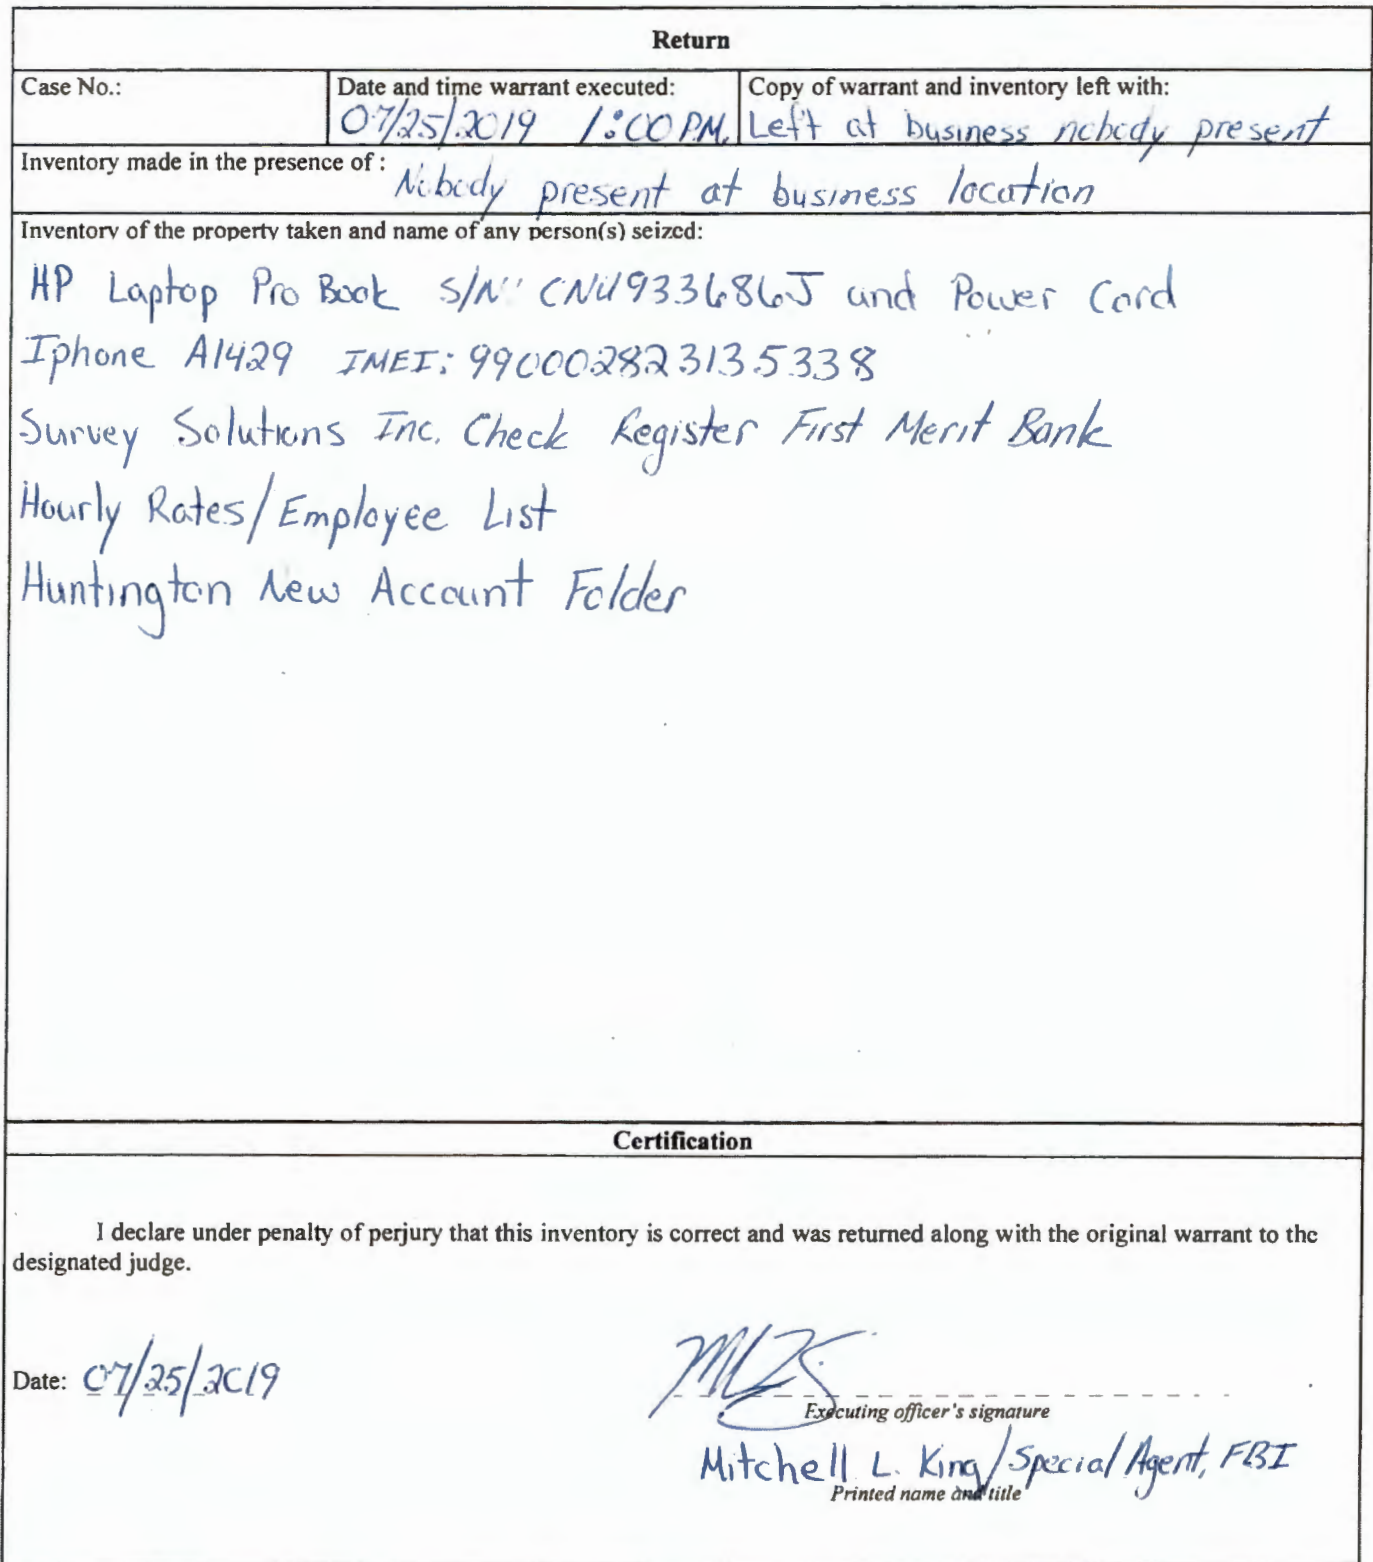 Return
Case No.:
Date and time warrant executed:
07/25/2019 1:00 PM.
Copy of warrant and inventory left with:
Left at business nobody present
Inventory made in the presence of :
Nobody present at business location
Inventory of the property taken and name of any person(s) seized:
HP Laptop Pro Book S/N: CNU933686J and Power Cord
Iphone A1429 IMEI: 990002823135338
Survey Solutions Inc. Check Register First Merit Bank
Hourly Rates/Employee List
Huntington New Account Folder
Certification
I declare under penalty of perjury that this inventory is correct and was returned along with the original warrant to the
designated judge.
Date: 07/25/2019
Executing officer's signature
Mitchell L. King/Special Agent, FBI
Printed name and title